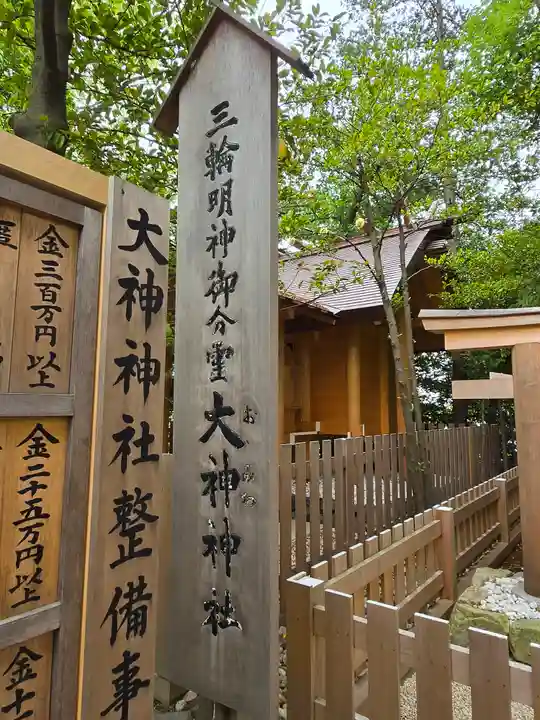 三輪明神御分霊 大神神社
おおみわ
大神神社整備事
金三百万円以上
金二十五万円以上
金十